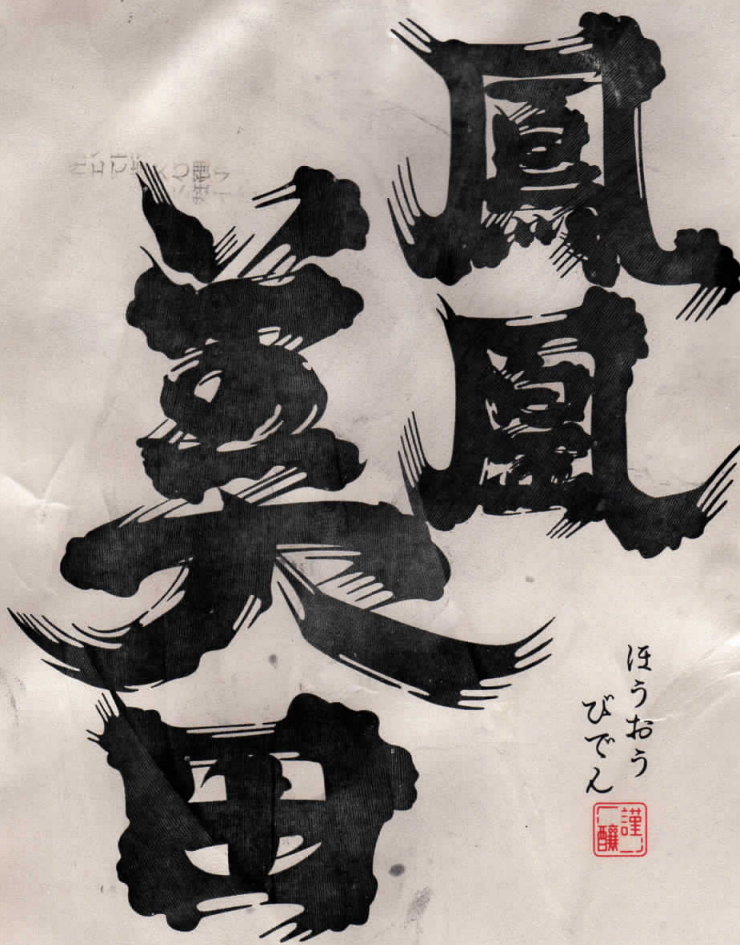 鳳凰
美田
ほうおう
びでん
謹醸